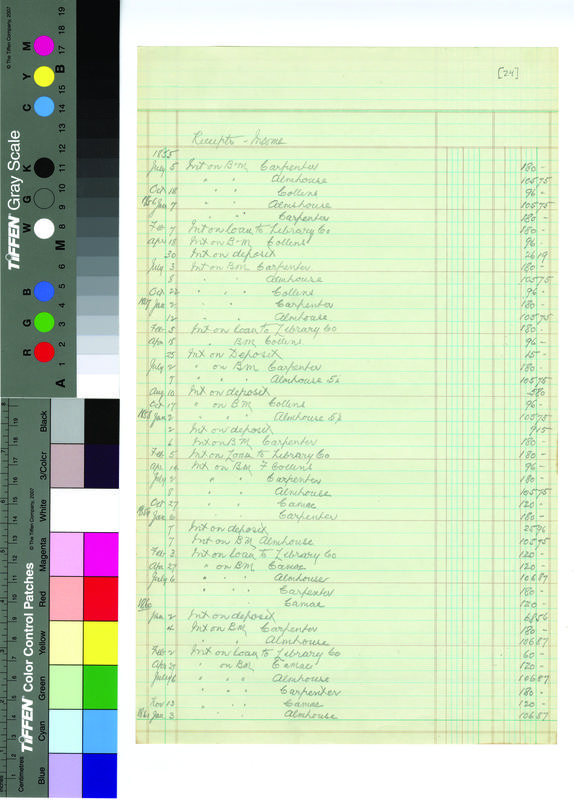 [24]
Receipts - Income
1855
July 5 Int on B-M Carpenter 180 -
" " Almhouse 10575
Oct 18 " " Collins 96 -
1856 Jan 7 " " Almshouse 10575
" " Carpenter 180 -
Feb 7 Int on loan to Library Co 180 -
Apr 18 Int on B-M Collins 96 -
30 Int on deposit 2619
July 3 Int on BM Carpenter 180 -
8 " " Almhouse 10575
Oct 22 " " Collins 96 -
1857 Jan 2 " " Carpenter 180 -
12 " Almhouse 10575
Feb 5 Int on loan to Library Co 180 -
Apr 18 " BM Collins 96 -
25 Int on Deposit 15 -
July 2 " on BM Carpenter 180 -
7 " " " Almhouse 10575
Aug 10 Int on deposit 580
Oct 17 " on BM Collins 96 -
1858 Jan 2 " " " Almhouse 10575
2 Int on deposit 915
6 Int on BM Carpenter 180 -
Feb 5 Int on Loan to Library Co 180 -
Apr Int on BM F Collins 96 -
July 2 " " Carpenter 180 -
8 " " Almhouse 10575
Oct 27 " " Camac 120 -
1859 Jan 6 " Carpenter 180 -
7 Int on deposit 2596
7 Int on BM Almhouse 10575
Feb 3 Int on loan to Library Co 120 -
Apr 27 " on BM Camac 120 -
July 6 " " " Almhouse 10687
" " Carpenter 180 -
" Camac 120 -
1860
Jan 2 Int on deposit 6856
4 Int on BM Carpenter 180 -
" " Almhouse 10687
Feb 2 Int on loan to Library Co 60 -
Apr 27 " on BM Camac 120 -
July 6 " " " Almhouse 10687
" " " Carpenter 180 -
Nov 13 " " Camac 120 -
1861 Jan 3 " Almhouse 10687
TIFFEN® Gray Scale
© The Tiffen Company, 2007
R G B W G K C Y M
A 1 2 3 4 5 6 M 8 9 10 11 12 13 14 15 B 17 18 19
TIFFEN® Color Control Patches
© The Tiffen Company, 2007
Centimetres
Blue Cyan Green Yellow Red Magenta White 3/Color Black